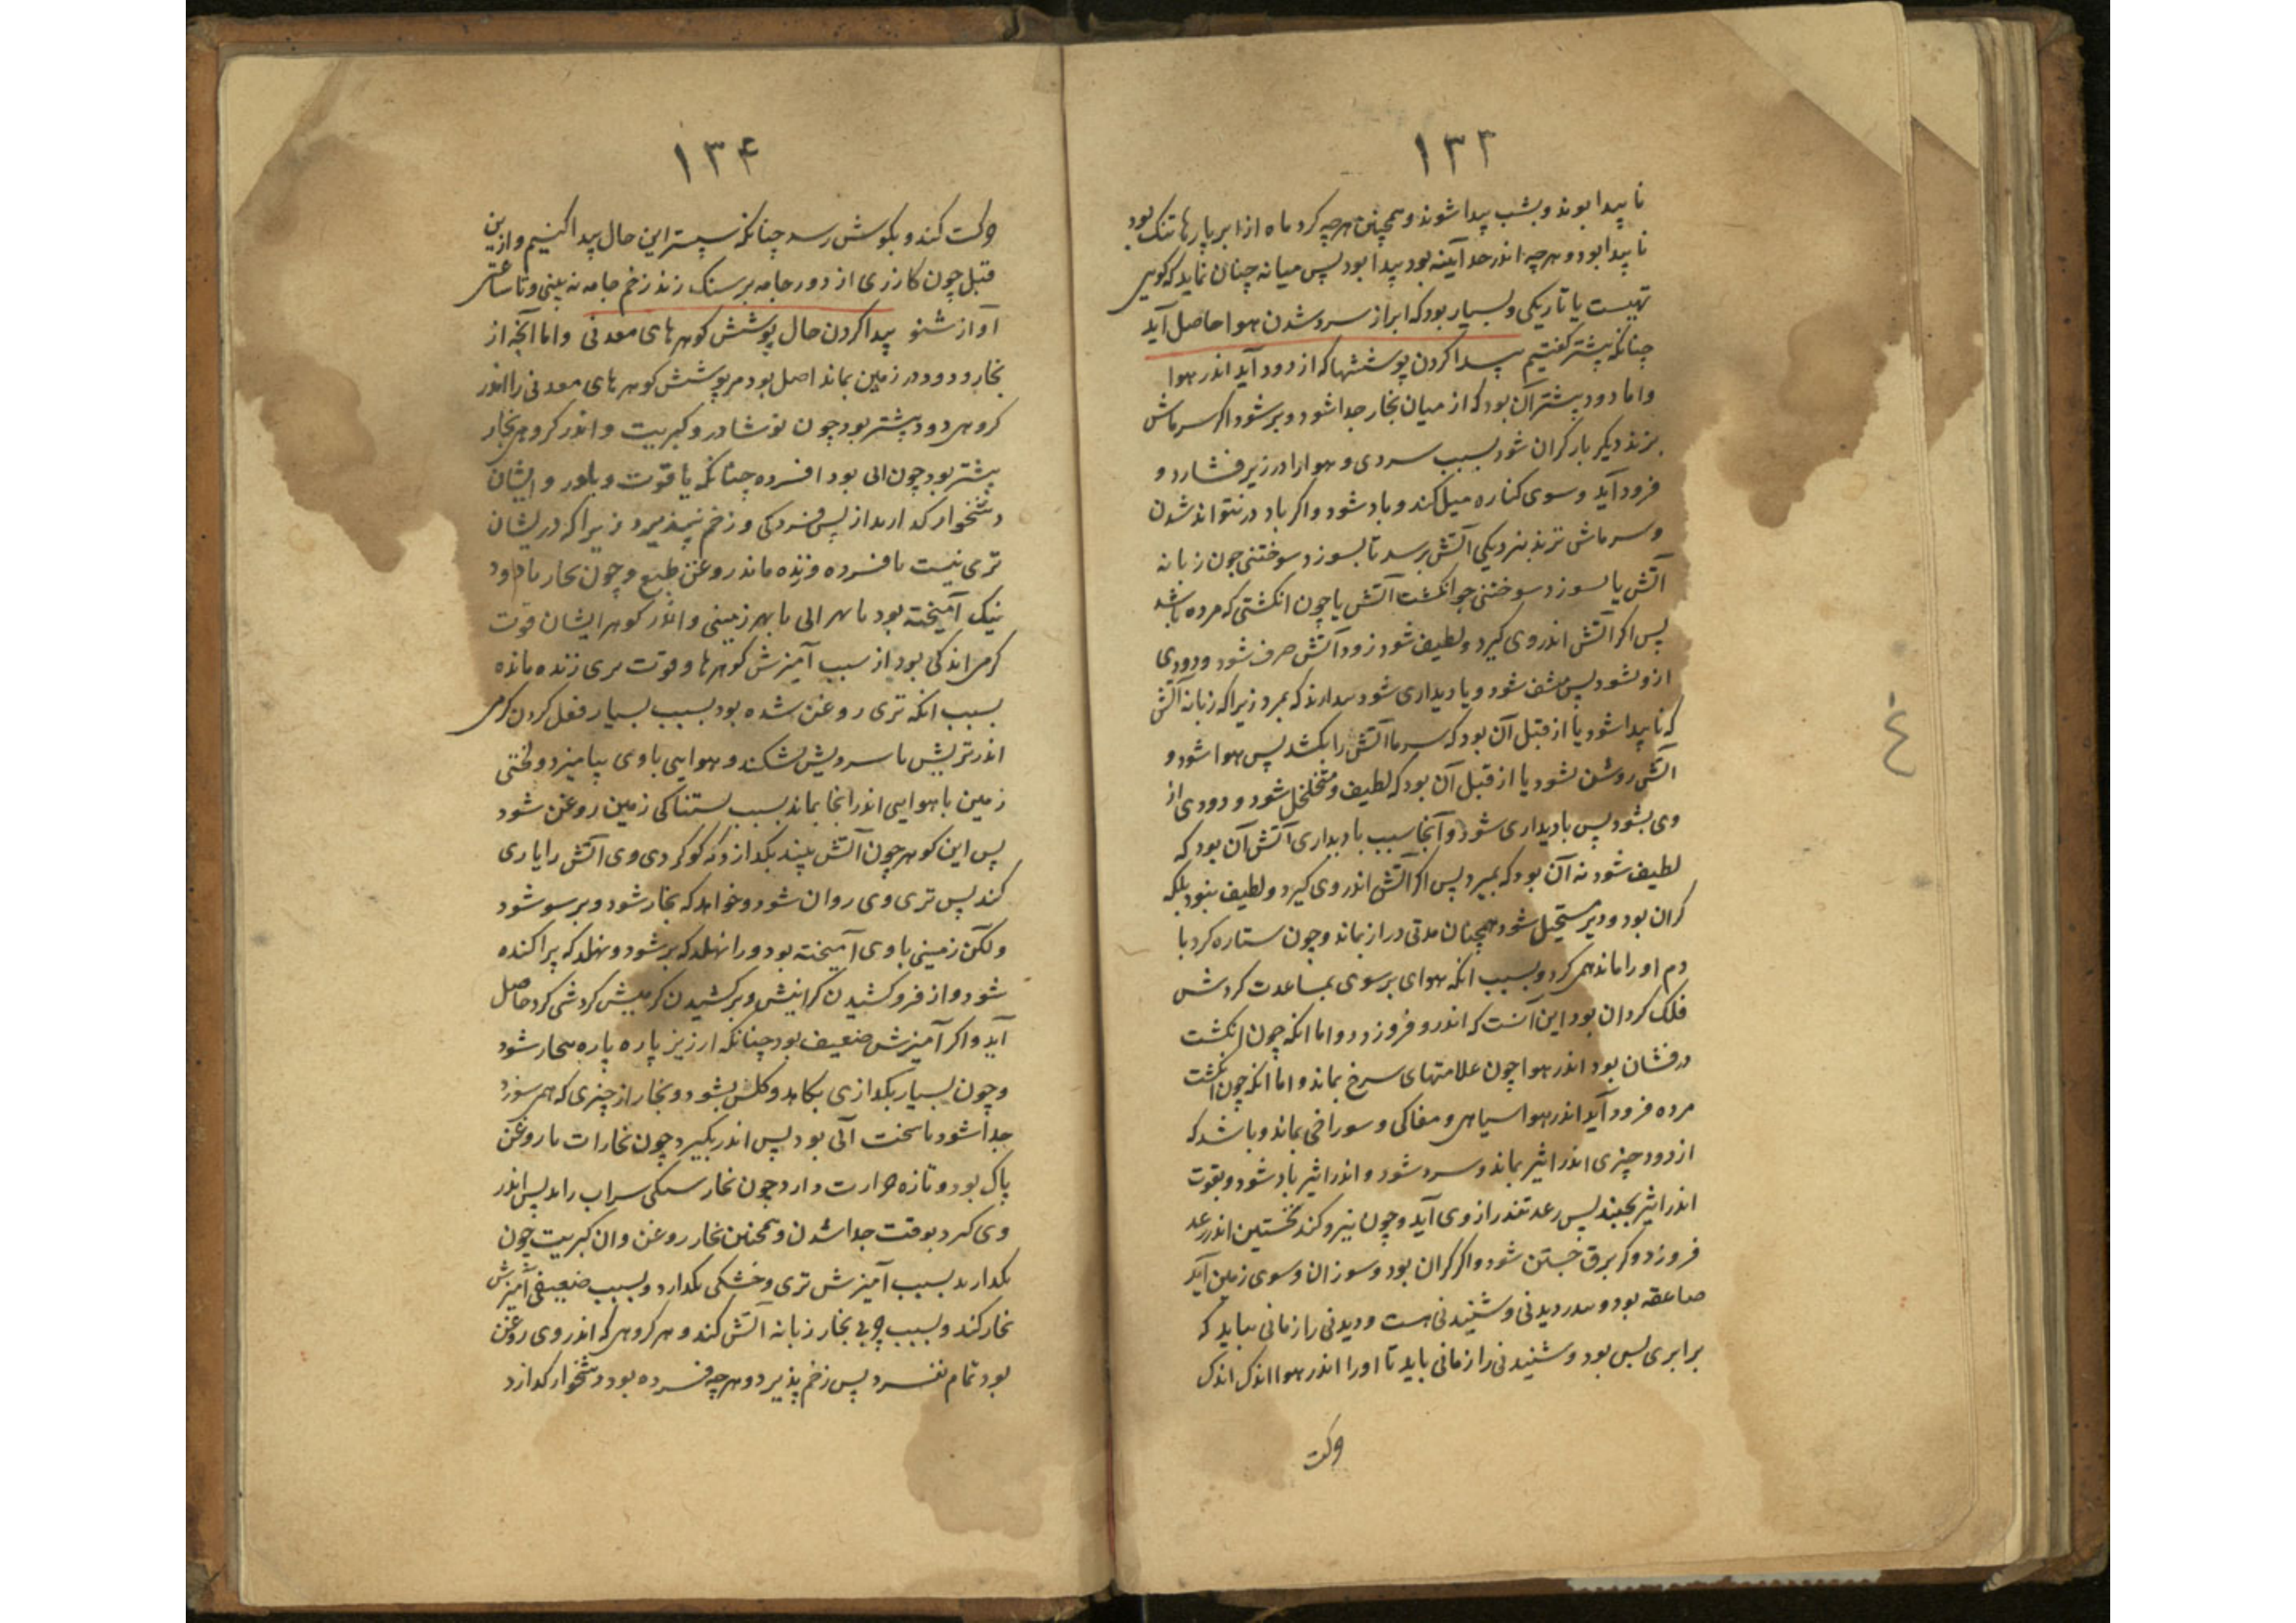 ۱۳۳
نا پیدا بوند و بشب پیدا شوند و همچنین هرچه کرد ماه از ابر پارها تنک بود
نا پیدا بود و هرچه اندر حد آینه بود پیدا بود پس میانه چنان نماید که کویی
تهیست یا تاریکی و بسیار بود که ابر از سرد شدن هوا حاصل آید
چنانکه پیشتر کفتیم پیدا کردن پوششها که از دود آید اندر هوا
و اما دود بیشتر آن بود که از میان بخار جدا شود و بر شود اکر سرماش
بزند دیکر بار کران شود بسبب سردی و هوا را در زیر فشارد و
فرود آید و سوی کناره میل کند و باد شود و اکر باد در نتواند شدن
و سرماش نزند بنزدیکی آتش برسد تا بسوزد سوختنی چون زبانه
آتش یا بسوزد سوختنی چو انکشت آتش یا چون انکشتی که مرده باشد
پس اکر آتش اندر وی کیرد و لطیف شود زود آتش صرف شود و دودی
ازو بشود پس مشف شود و یا دیداری شود بدارند که بمرد زیرا که زبانه آتش
که نا پیدا شود یا از قبل آن بود که سرما آتش را بکشد پس هوا شود و
آتش روشن نشود یا از قبل آن بود که لطیف و متخلخل شود و دودی از
وی بشود پس بادیداری شود و آنجا سبب بادیداری آتش آن بود که
لطیف شود نه آن بود که بمیرد پس اکر آتش اندر وی کیرد و لطیف نبود بلکه
کران بود و دیر مستحیل شود همچنان مدتی دراز بماند و چون ستاره کرد با
دم او را ماند همی کردد بسبب انکه هوای بر سوی بمساعدت کردش
فلک کردان بود این آنست که اندر و فروزد و اما انکه چون انکشت
درفشان بود اندر هوا چون علامتهای سرخ بماند و اما انکه چون انکشت
مرده فرود آید اندر هوا سیاهی و مغاکی و سوراخی بماند و باشد که
از دود چیزی اندر اثیر بماند و سرد شود و اندر اثیر باد شود و بقوت
اندر اثیر بجنبد پس رعد تندر از وی آید و چون نیرو کند نخستین اندر رعد
فروزد و کر برق جستن شود و اکر کران بود و سوزان و سوی زمین آید
صاعقه بود و تندر دیدنی و شنیدنی هست و دیدنی را زمانی نباید که
برابری بس بود و شنیدنی را زمانی باید تا او را اندر هوا اندک اندک
حرکت
۱۳۴
حرکت کند و بکوش رسد چنانکه سپستر این حال پیدا کنیم و از ین
قبل چون کازری از دور جامه بر سنک زند زخم جامه نه بینی و تا ساعتی
آواز شنو پیدا کردن حال پوشش کوهرهای معدنی و اما آنچه از
بخار و دود در زمین بماند اصل بود مر پوشش کوهرهای معدنی را اندر
کروهی دود بیشتر بود چون نوشادر و کبریت و اندر کروهی بخار
بیشتر بود چون ابی بود افسرده چنانکه یاقوت و بلور و ایشان
دشخوار کدازند از پس فسردکی و زخم نپذیرد زیرا که دریشان
تری نیست نا فسرده و زنده ماند روغن طبع و چون بخار با دود
نیک آمیخته بود بهر ابی با بهر زمینی و اندر کوهر ایشان قوت
کرمی اندکی بود از سبب آمیزش کوهرها و قوت تری زنده مانده
بسبب انکه تری روغن شده بود بسبب بسیار فعل کردن کرمی
اندر تریش تا سردیش بشکند و هوایی با وی بیامیزد و لختی
زمین با هوایی اندر آنجا بماند بسبب بستناکی زمین روغن شود
پس این کوهر چون آتش بیند بکدازد که کوکردی وی آتش را یاری
کند پس تری وی روان شود و خواهد که بخار شود و بر سو شود
و لکن زمینی با وی آمیخته بود و را نهلد که بر شود و نهلد که پراکنده
شود و از فرو کشیدن کرانیش و بر کشیدن کرمیش کردشی کرد حاصل
آید و اکر آمیزش ضعیف بود چنانکه ارزیز پاره پاره بخار شود
و چون بسیار بکدازی بکاهد و کلس بشود و بخار از چیزی که همی سوزد
جدا شود تا سخت آبی بود پس اندر بکیرد چون بخارات با روغن
پاک بود و تازه حرارت دارد چون بخار سیکی سراب راند پس اندر
وی کیرد بوقت جدا شدن و همچنین بخار روغن وان کبریت چون
بکدازند بسبب آمیزش تری و خشکی بکدازد و بسبب ضعیفی آمیزش
بخار کند و بسبب چربی بخار زبانه آتش کند و هر کروهی که اندر وی روغن
بود تمام نفسرد پس زخم پذیرد و هرچه فسرده بود دشخوار کدازد